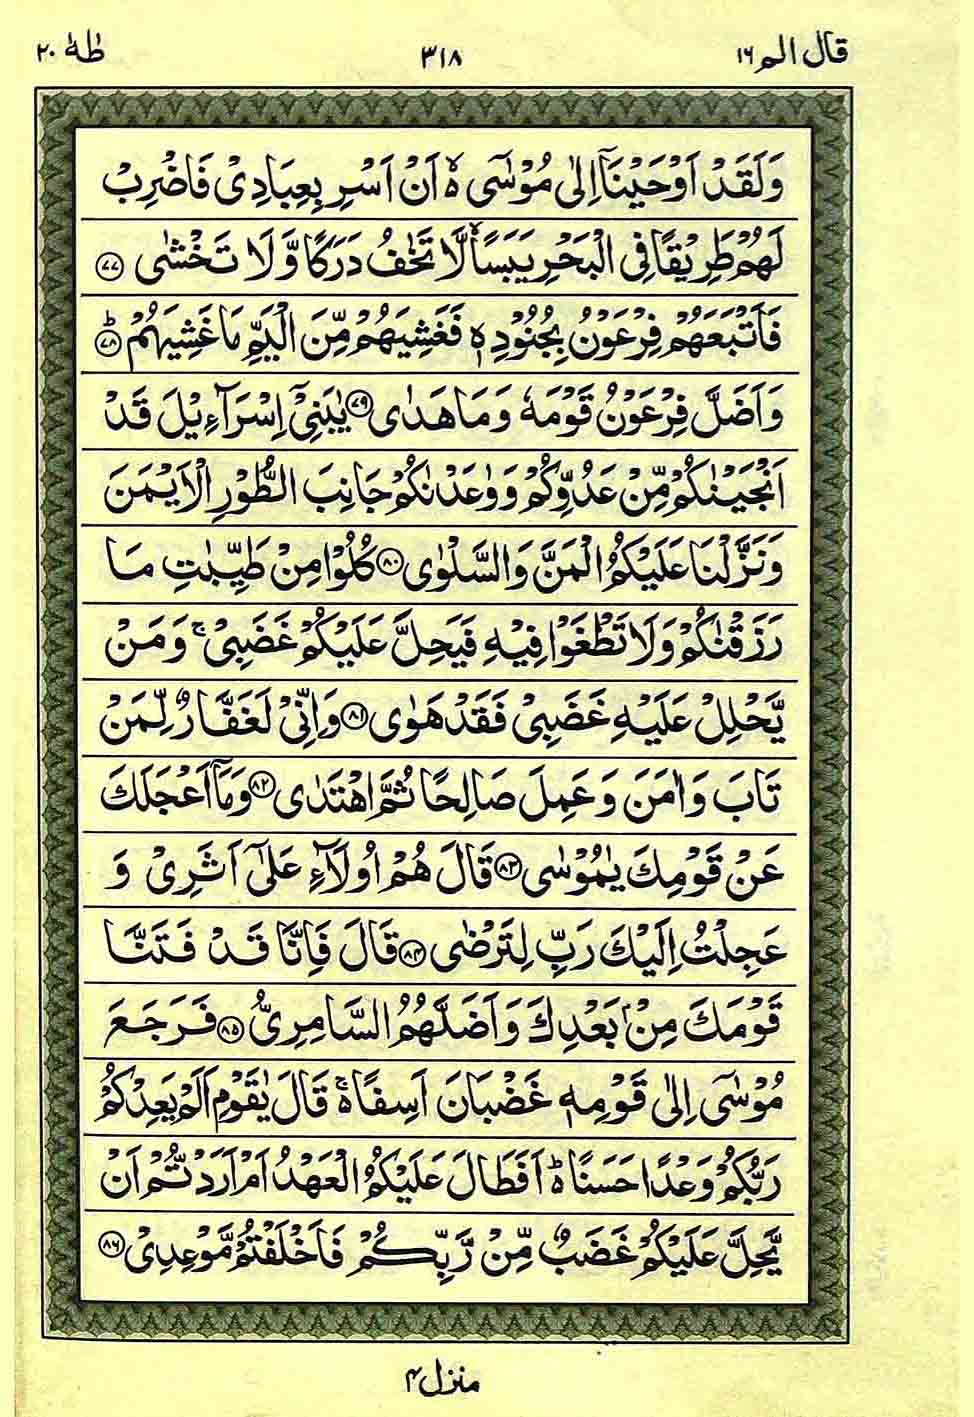 قال الم ١٦
٣١٨
طٰهٰ ٢٠
وَلَقَدْ اَوْحَيْنَآ اِلٰى مُوْسٰٓى ۙ اَنْ اَسْرِ بِعِبَادِىْ فَاضْرِبْ
لَهُمْ طَرِيْقًا فِى الْبَحْرِ يَبَسًا ۙ لَّا تَخٰفُ دَرَكًا وَّلَا تَخْشٰى ﴿٧٧﴾
فَاَتْبَعَهُمْ فِرْعَوْنُ بِجُنُوْدِهٖ فَغَشِيَهُمْ مِّنَ الْيَمِّ مَا غَشِيَهُمْ ﴿٧٨﴾ؕ
وَاَضَلَّ فِرْعَوْنُ قَوْمَهٗ وَمَا هَدٰى ﴿٧٩﴾ يٰبَنِىْٓ اِسْرَآءِيْلَ قَدْ
اَنْجَيْنٰكُمْ مِّنْ عَدُوِّكُمْ وَوٰعَدْنٰكُمْ جَانِبَ الطُّوْرِ الْاَيْمَنَ
وَنَزَّلْنَا عَلَيْكُمُ الْمَنَّ وَالسَّلْوٰى ﴿٨٠﴾ كُلُوْا مِنْ طَيِّبٰتِ مَا
رَزَقْنٰكُمْ وَلَا تَطْغَوْا فِيْهِ فَيَحِلَّ عَلَيْكُمْ غَضَبِىْ ۚ وَمَنْ
يَّحْلِلْ عَلَيْهِ غَضَبِىْ فَقَدْ هَوٰى ﴿٨١﴾ وَاِنِّىْ لَغَفَّارٌ لِّمَنْ
تَابَ وَاٰمَنَ وَعَمِلَ صَالِحًا ثُمَّ اهْتَدٰى ﴿٨٢﴾ وَمَآ اَعْجَلَكَ
عَنْ قَوْمِكَ يٰمُوْسٰى ﴿٨٣﴾ قَالَ هُمْ اُولَآءِ عَلٰٓى اَثَرِىْ وَ
عَجِلْتُ اِلَيْكَ رَبِّ لِتَرْضٰى ﴿٨٤﴾ قَالَ فَاِنَّا قَدْ فَتَنَّا
قَوْمَكَ مِنْۢ بَعْدِكَ وَاَضَلَّهُمُ السَّامِرِىُّ ﴿٨٥﴾ فَرَجَعَ
مُوْسٰٓى اِلٰى قَوْمِهٖ غَضْبَانَ اَسِفًا ۚ قَالَ يٰقَوْمِ اَلَمْ يَعِدْكُمْ
رَبُّكُمْ وَعْدًا حَسَنًا ؕ اَفَطَالَ عَلَيْكُمُ الْعَهْدُ اَمْ اَرَدْتُّمْ اَنْ
يَّحِلَّ عَلَيْكُمْ غَضَبٌ مِّنْ رَّبِّكُمْ فَاَخْلَفْتُمْ مَّوْعِدِىْ ﴿٨٦﴾
منزل ٤